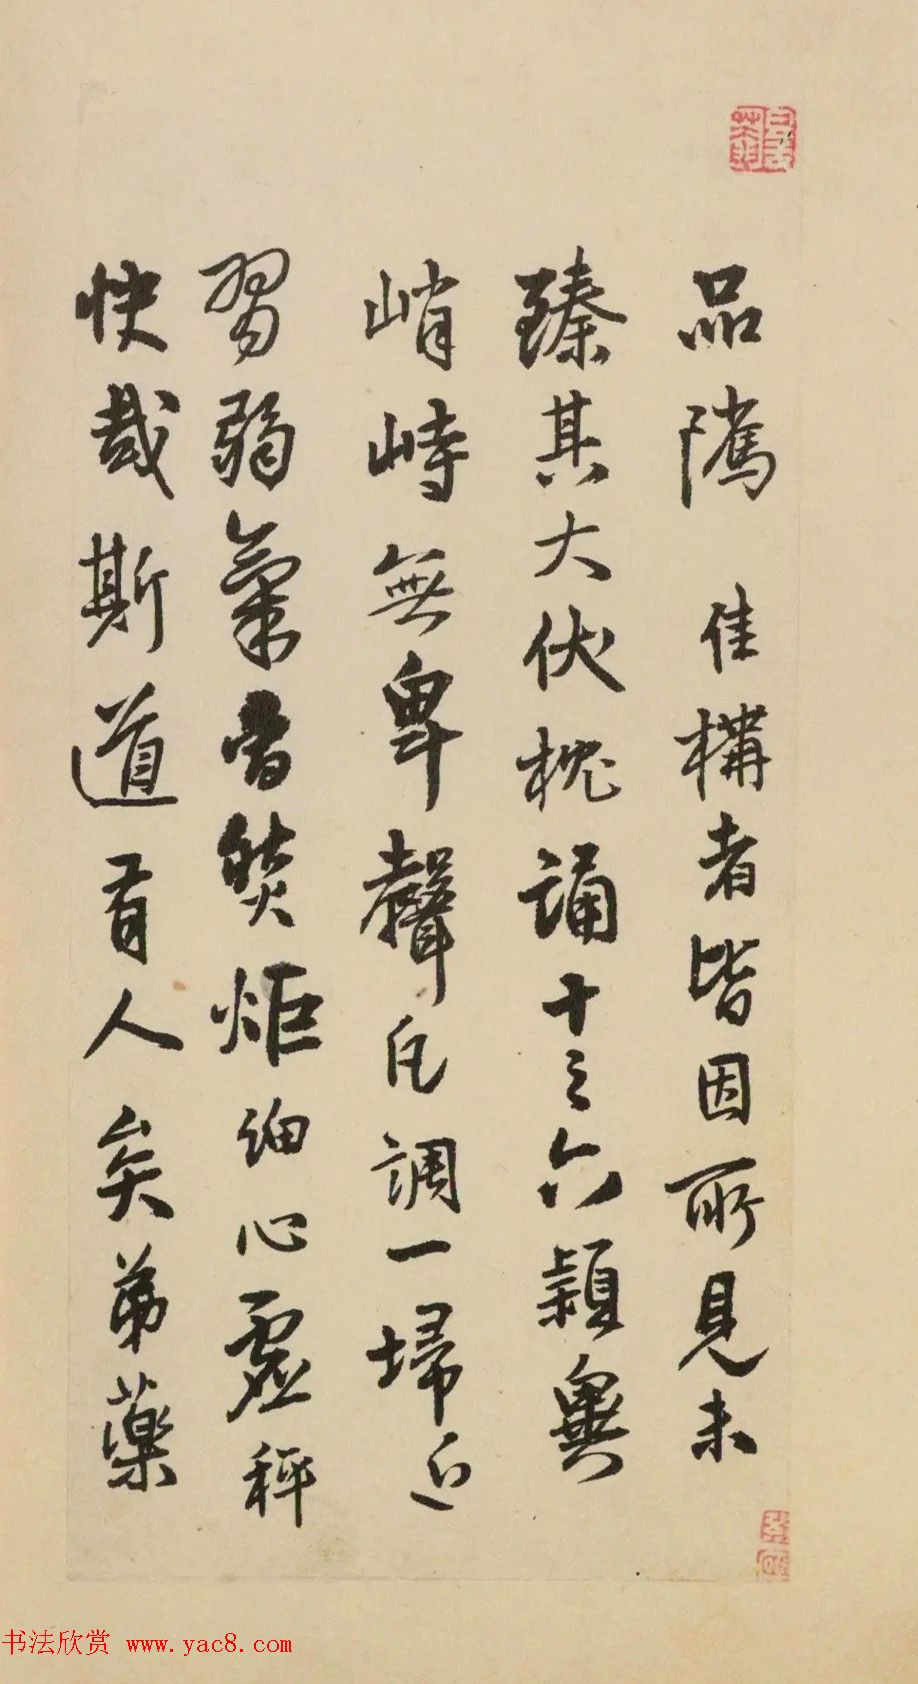 品隲佳構者皆因所見未
臻其大伏枕誦十之六顈奧
峭峙無卑聲凡調一埽近
習弱氣昏燄炬細心虛秤
快哉斯道有人矣弟藥
书法欣赏 www.yac8.com